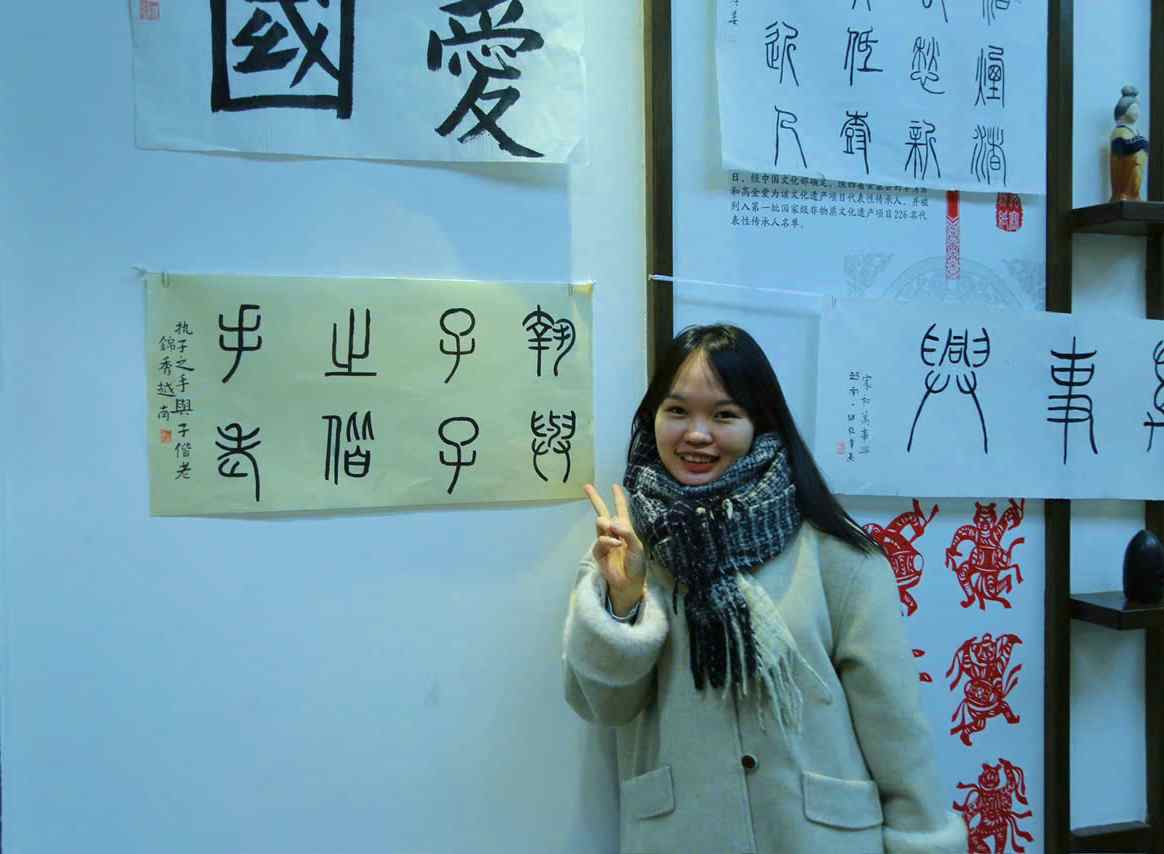 愛國
執子之手
與子偕老
执子之手與子偕老
錦香越南
煙渚
愁新
低樹
近人
日,经中国文化部确定,陕西省
和高金爱为该文化遗产项目代表性传承人,并被
列入第一批国家级非物质文化遗产项目226名代
表性传承人名单。
事興
家和萬事興
越南